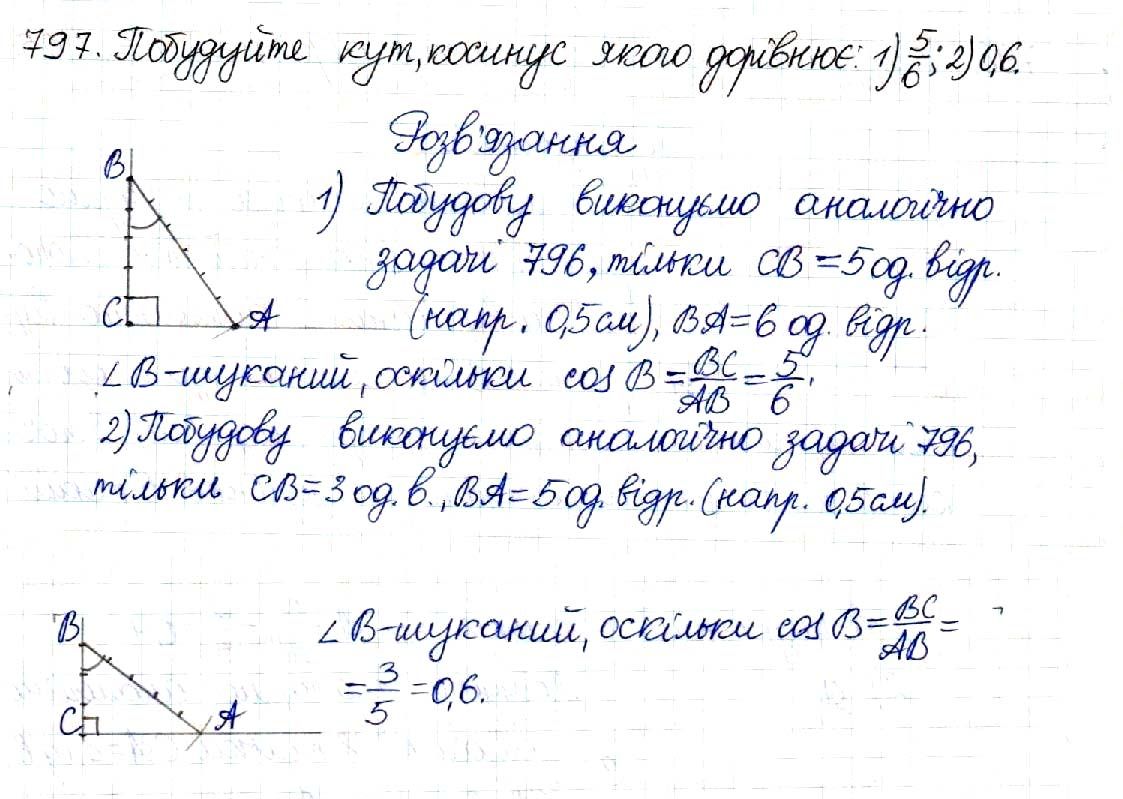 797. Побудуйте кут, косинус якого дорівнює: 1) 5/6; 2) 0,6.
Розв'язання
B
C
A
1) Побудову виконуємо аналогічно
задачі 796, тільки CB = 5 од. відр.
(напр. 0,5 см), BA = 6 од. відр.
∠B - шуканий, оскільки cos B = BC/AB = 5/6.
2) Побудову виконуємо аналогічно задачі 796,
тільки CB = 3 од. в., BA = 5 од. відр. (напр. 0,5 см).
B
C
A
∠B - шуканий, оскільки cos B = BC/AB =
= 3/5 = 0,6.